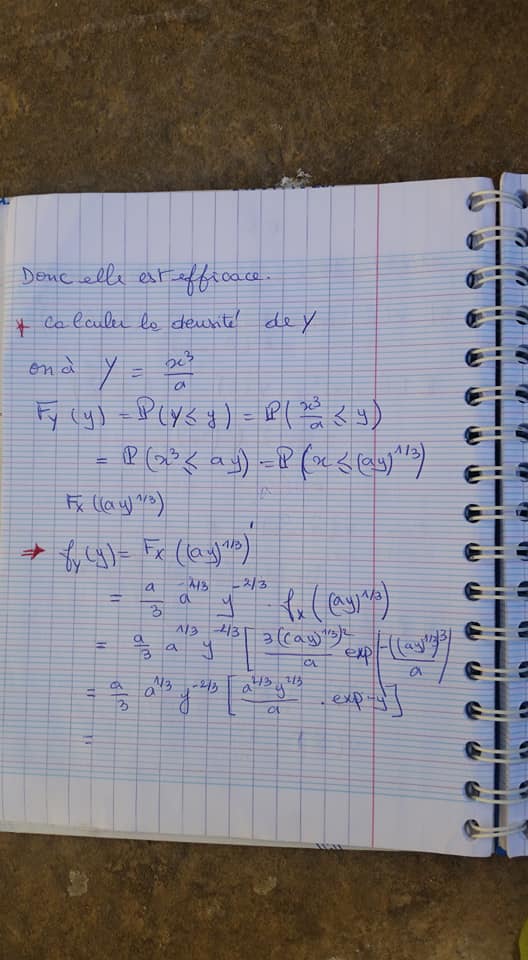 Donc elle est efficace.
* Calculer la densité de Y
on à Y = x³/a
F_Y(y) = ℙ(Y ≤ y) = ℙ(x³/a ≤ y)
= ℙ(x³ ≤ ay) = ℙ(x ≤ (ay)^1/3)
F_X((ay)^1/3)
⇒ f_Y(y) = F_X((ay)^1/3)'
= a/3 a^-2/3 y^-2/3 . f_X((ay)^1/3)
= a/3 a^1/3 y^-2/3 [3((ay)^1/3)²/a exp(-((ay)^1/3)³/a)
= a/3 a^1/3 y^-2/3 [a^2/3 y^2/3/a . exp-y]
=